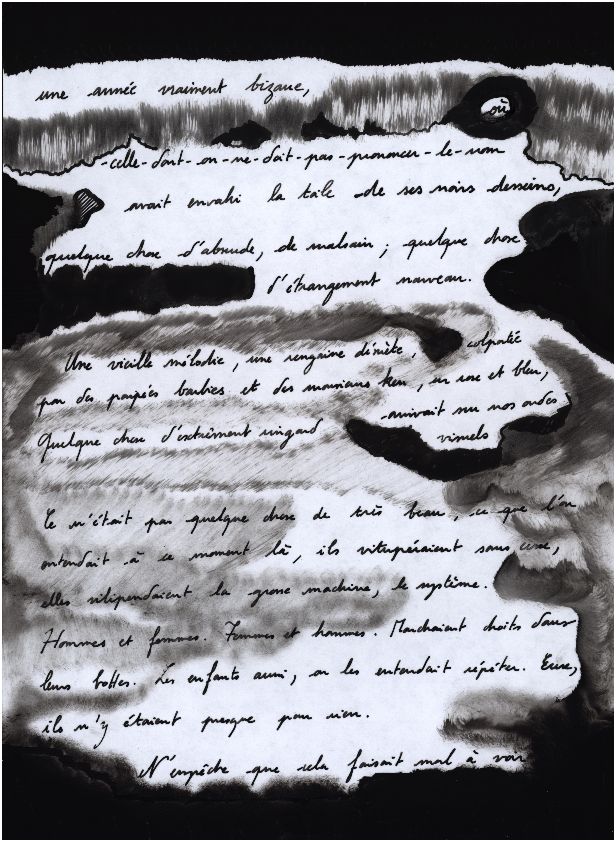 une année vraiment bizarre,
où
-celle-dont-on-ne-doit-pas-prononcer-le-nom
avait envahi la toile de ses noirs desseins,
quelque chose d'absurde, de malsain ; quelque chose
d'étrangement nouveau.
Une vieille mélodie, une rengaine désuète, colportée
par des poupées barbies et des messieurs ken, en rose et bleu,
arrivait sur nos ondes
Quelque chose d'extrêmement ringard
visuels
Ce n'était pas quelque chose de très beau, ce que l'on
entendait à ce moment là, ils vitupéraient sans cesse,
elles vilipendaient la grosse machine, le système.
Hommes et femmes. Femmes et hommes. Marchaient droits dans
leurs bottes. Les enfants aussi, on les entendait répéter. Eux,
ils n'y étaient presque pour rien.
N'empêche que cela faisait mal à voir